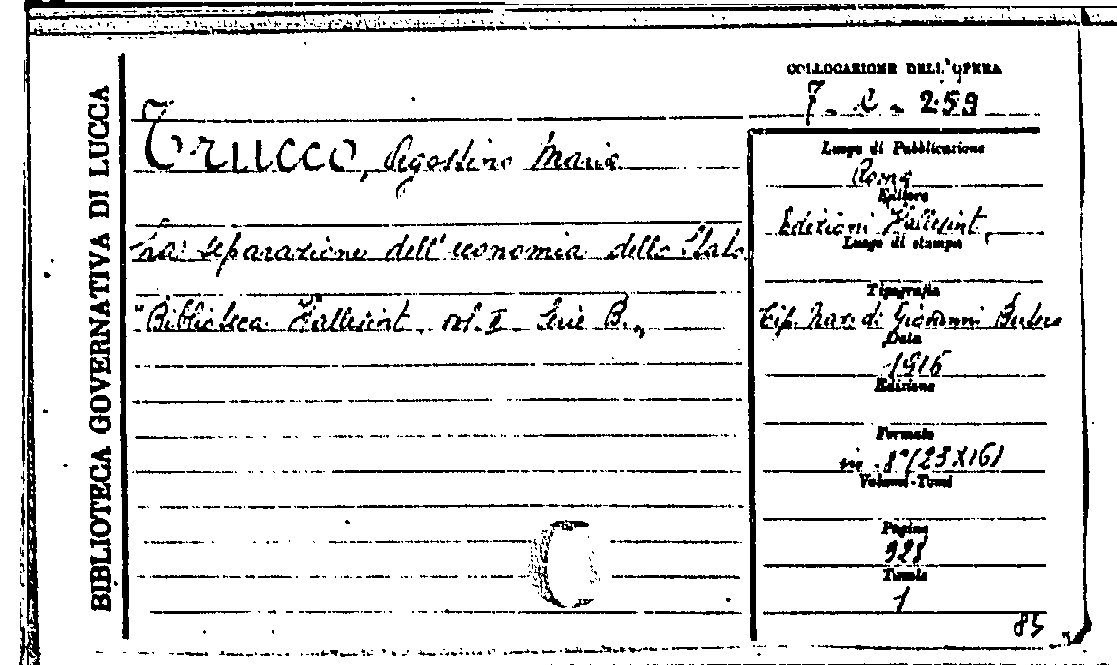 BIBLIOTECA GOVERNATIVA DI LUCCA
COLLOCAZIONE DELL'OPERA
7 - C - 259
TRUCCO, Agostino Maria
La separazione dell'economia dello Stato
"Biblioteca Hallesint, vol. II - Serie B.„
Luogo di Pubblicazione
Roma
Editore
Edizioni Hallesint,
Luogo di stampa
Tipografia
Tip. Naz. di Giovanni Bertero
Data
1916
Edizione
Formato
in 8°(23X16)
Volumi-Tomi
Pagine
928
Tavole
1
85